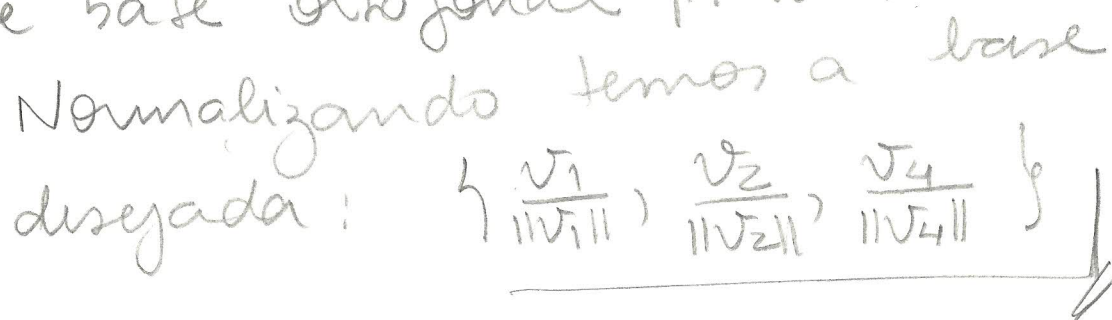 e base ortogonal p.
Normalizando temos a base
desejada: { v1/||v1||, v2/||v2||, v4/||v4|| }